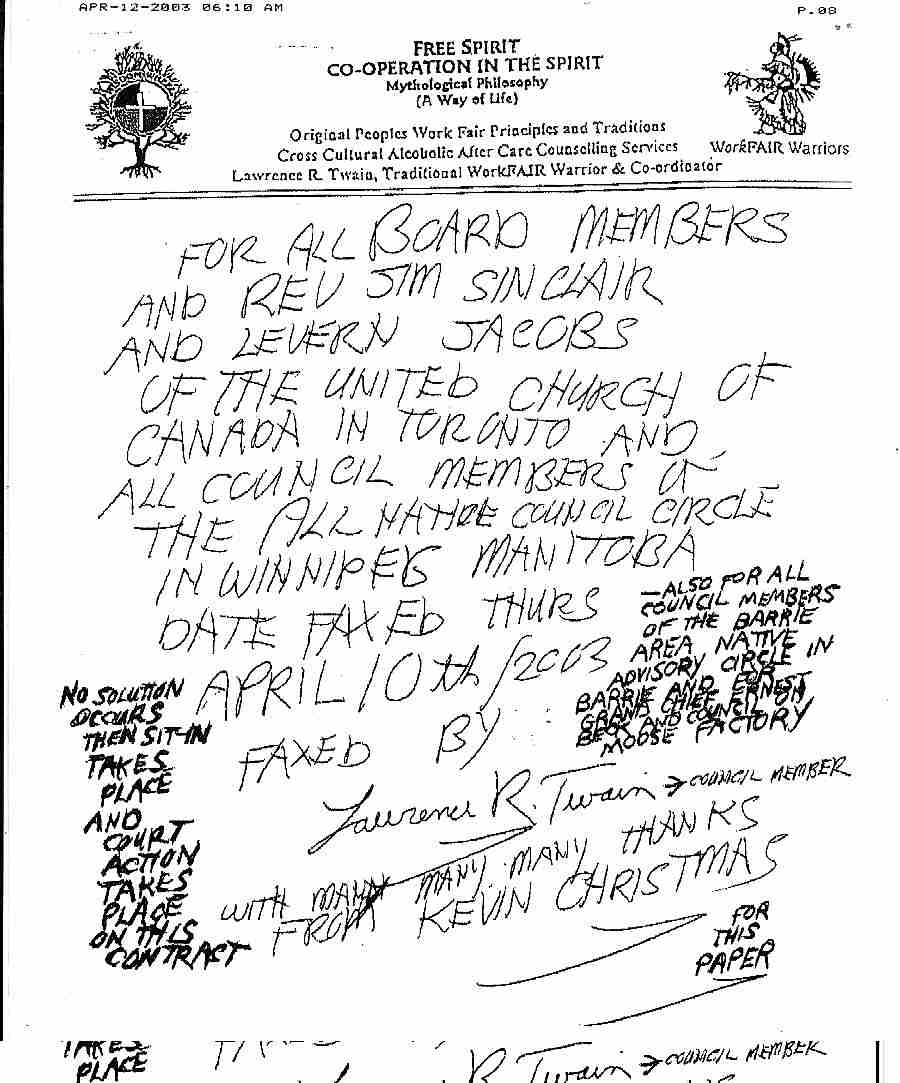 APR-12-2003 06:10 AM
P.08
FREE SPIRIT
CO-OPERATION IN THE SPIRIT
Mythological Philosophy
(A Way of Life)
Original Peoples Work Fair Principles and Traditions
Cross Cultural Alcoholic After Care Counselling Services
WorkFAIR Warriors
Lawrence R. Twain, Traditional WorkFAIR Warrior & Co-ordinator
FOR ALL BOARD MEMBERS
AND REV JIM SINCLAIR
AND LEVERN JACOBS
OF THE UNITED CHURCH OF
CANADA IN TORONTO AND
ALL COUNCIL MEMBERS OF
THE ALL NATIVE COUNCIL CIRCLE
IN WINNIPEG MANITOBA
DATE FAXED THURS
APRIL 10th/2003
FAXED BY :
Lawrence R. Twain → COUNCIL MEMBER
WITH MANY MANY MANY MANY THANKS
FROM KEVIN CHRISTMAS
FOR
THIS
PAPER
—ALSO FOR ALL
COUNCIL MEMBERS
OF THE BARRIE
AREA NATIVE
ADVISORY CIRCLE IN
BARRIE AND FOR
GRAND CHIEF ERNEST
BECK AND COUNCIL ON
MOOSE FACTORY
NO SOLUTION
OCCURS
THEN SIT-IN
TAKES
PLACE
AND
COURT
ACTION
TAKES
PLACE
ON THIS
CONTRACT
TAKES
PLACE
R. Twain → COUNCIL MEMBER